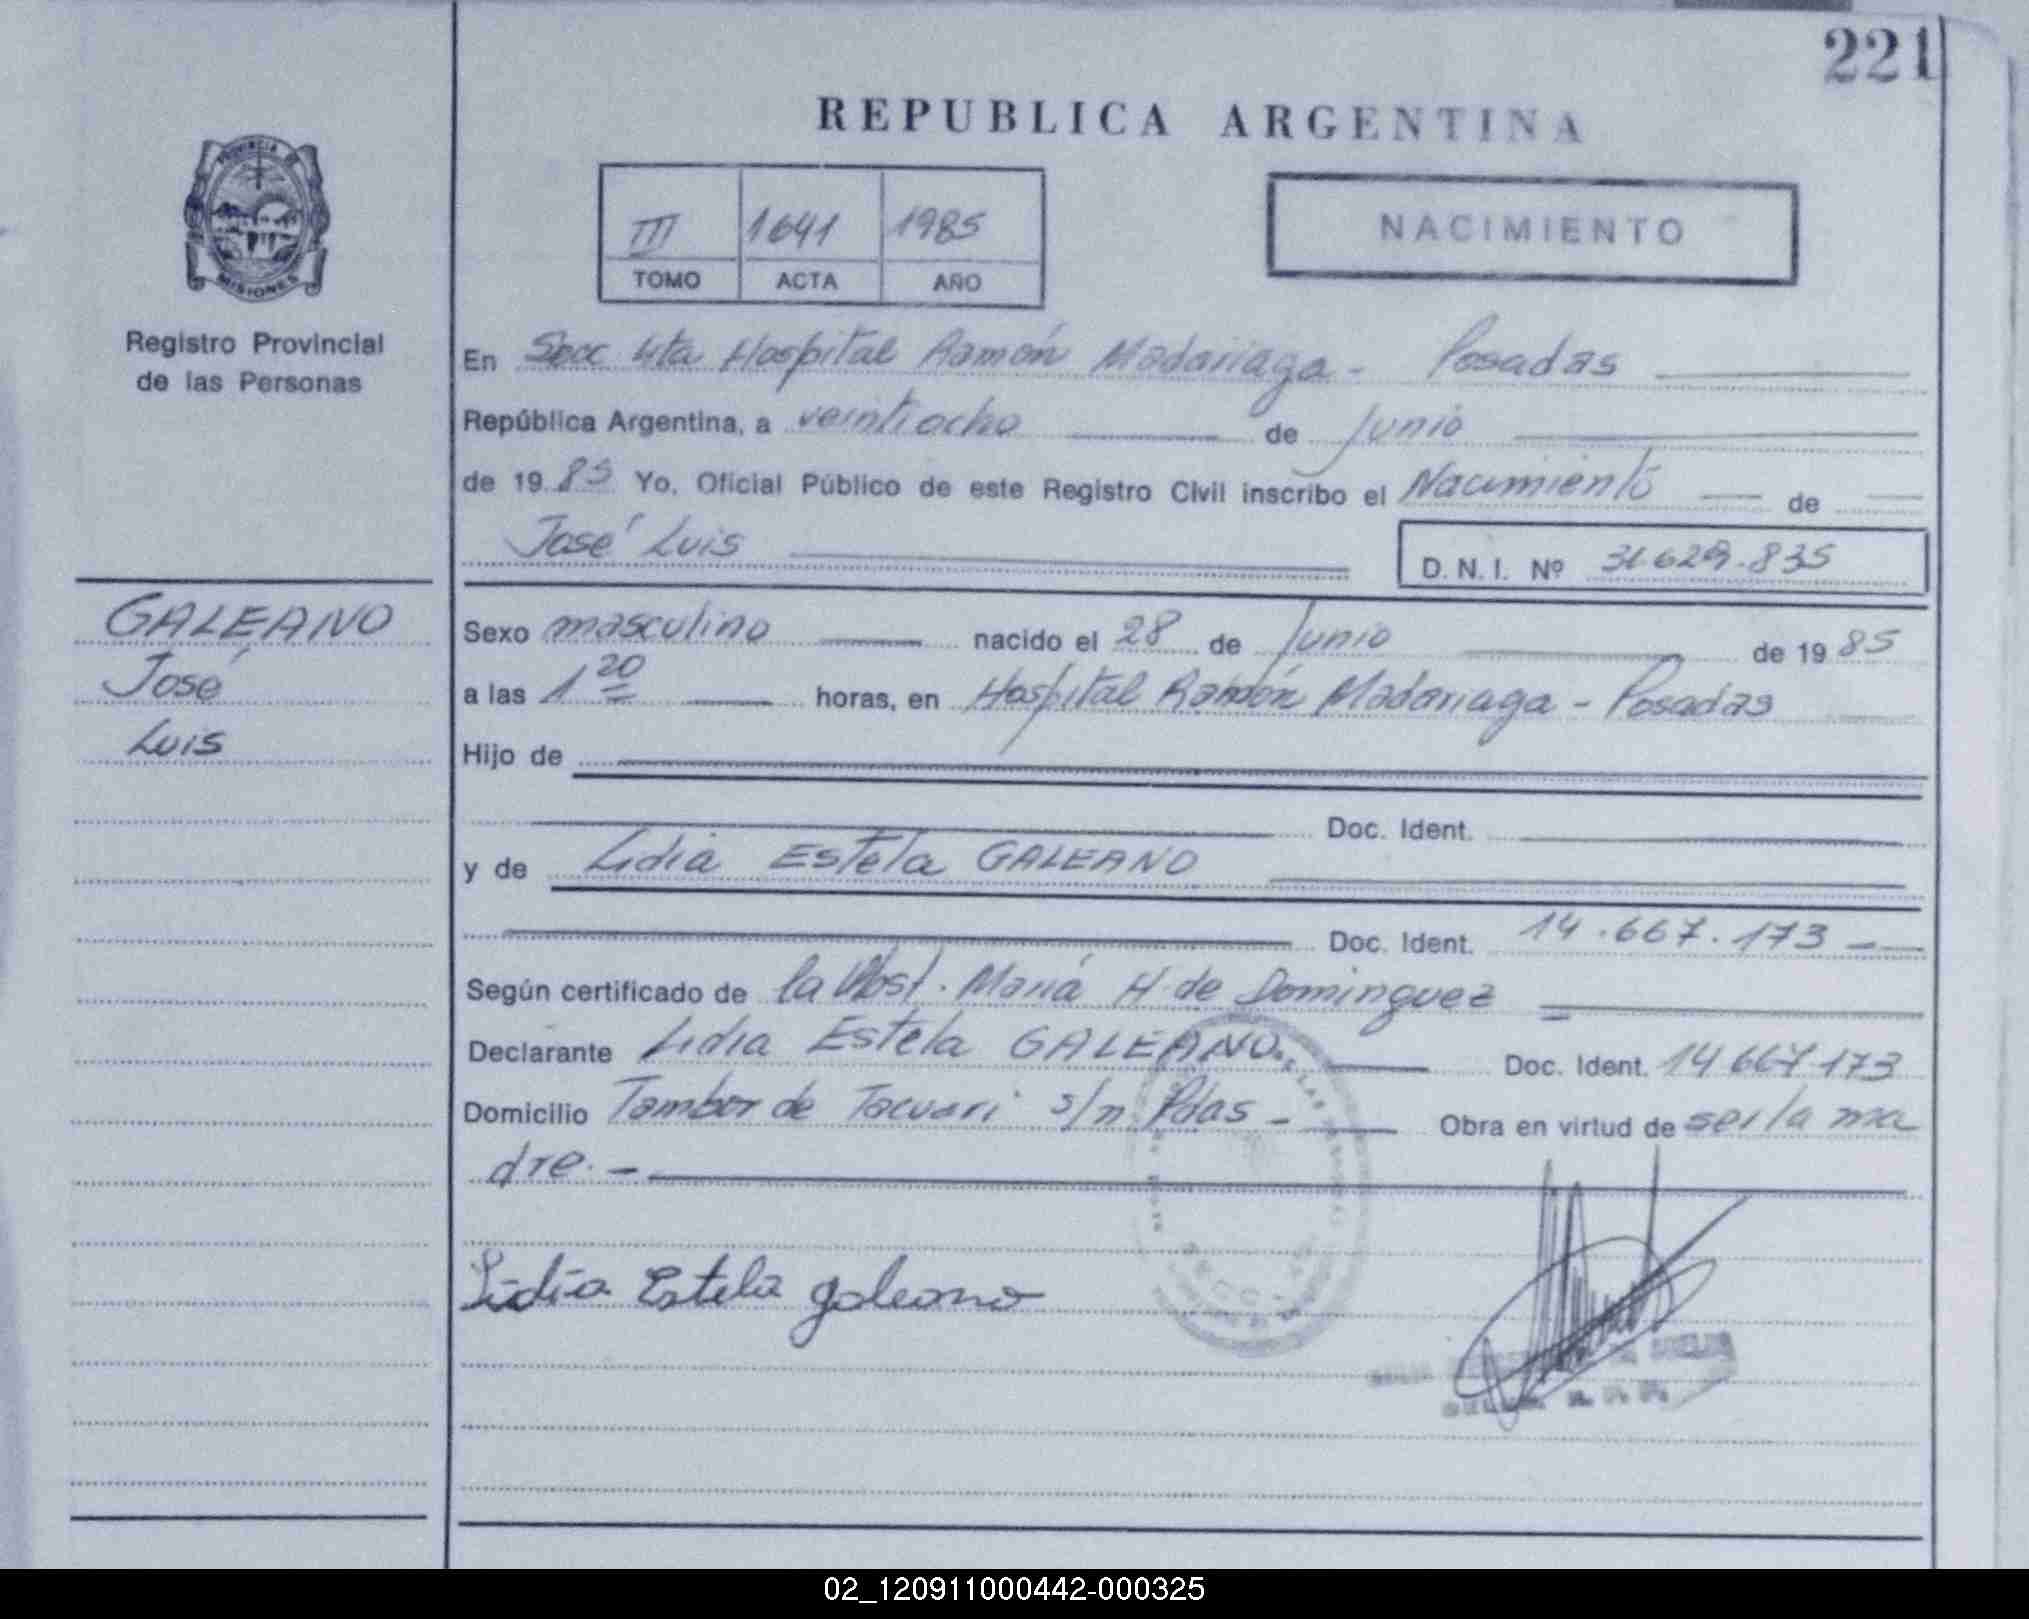 221
REPUBLICA ARGENTINA
PROVINCIA DE
MISIONES
III 1641 1985
TOMO ACTA AÑO
NACIMIENTO
Registro Provincial
de las Personas
En Secc 4ta Hospital Ramón Madariaga - Posadas
República Argentina, a veintiocho de Junio
de 19 85 Yo, Oficial Público de este Registro Civil inscribo el Nacimiento de
José Luis
D. N. I. Nº 31.629.835
GALEANO
José
Luis
Sexo masculino nacido el 28 de Junio de 19 85
a las 1 20 horas, en Hospital Ramón Madariaga - Posadas
Hijo de
Doc. Ident.
y de Lidia Estela GALEANO
Doc. Ident. 14.667.173 -
Según certificado de la Obst. María H de Dominguez
Declarante Lidia Estela GALEANO Doc. Ident. 14 667 173
Domicilio Tambor de Tacuari s/n Pdas - Obra en virtud de ser la ma
dre. -
Lidia Estela galeano
02_120911000442-000325